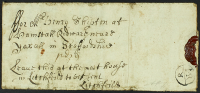 For Mr Henry Shipton at
Hamstall Ridware neare
Yoxall in Staffordshire
Leave this at the next house
in Litchfield to be sent
Litchfield